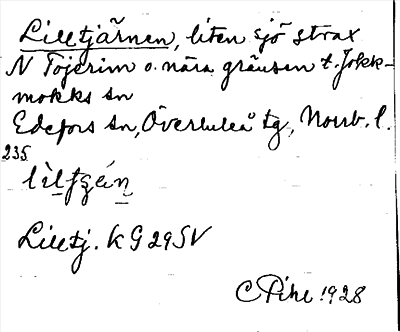 Lilltjärnen, liten sjö strax
N Töjerim o. nära gränsen t. Jokk-
mokks sn
Edefors sn, Överluleå tg, Norrb. l.
235
Lilltj. k G 29 SV
C Pihl 1928